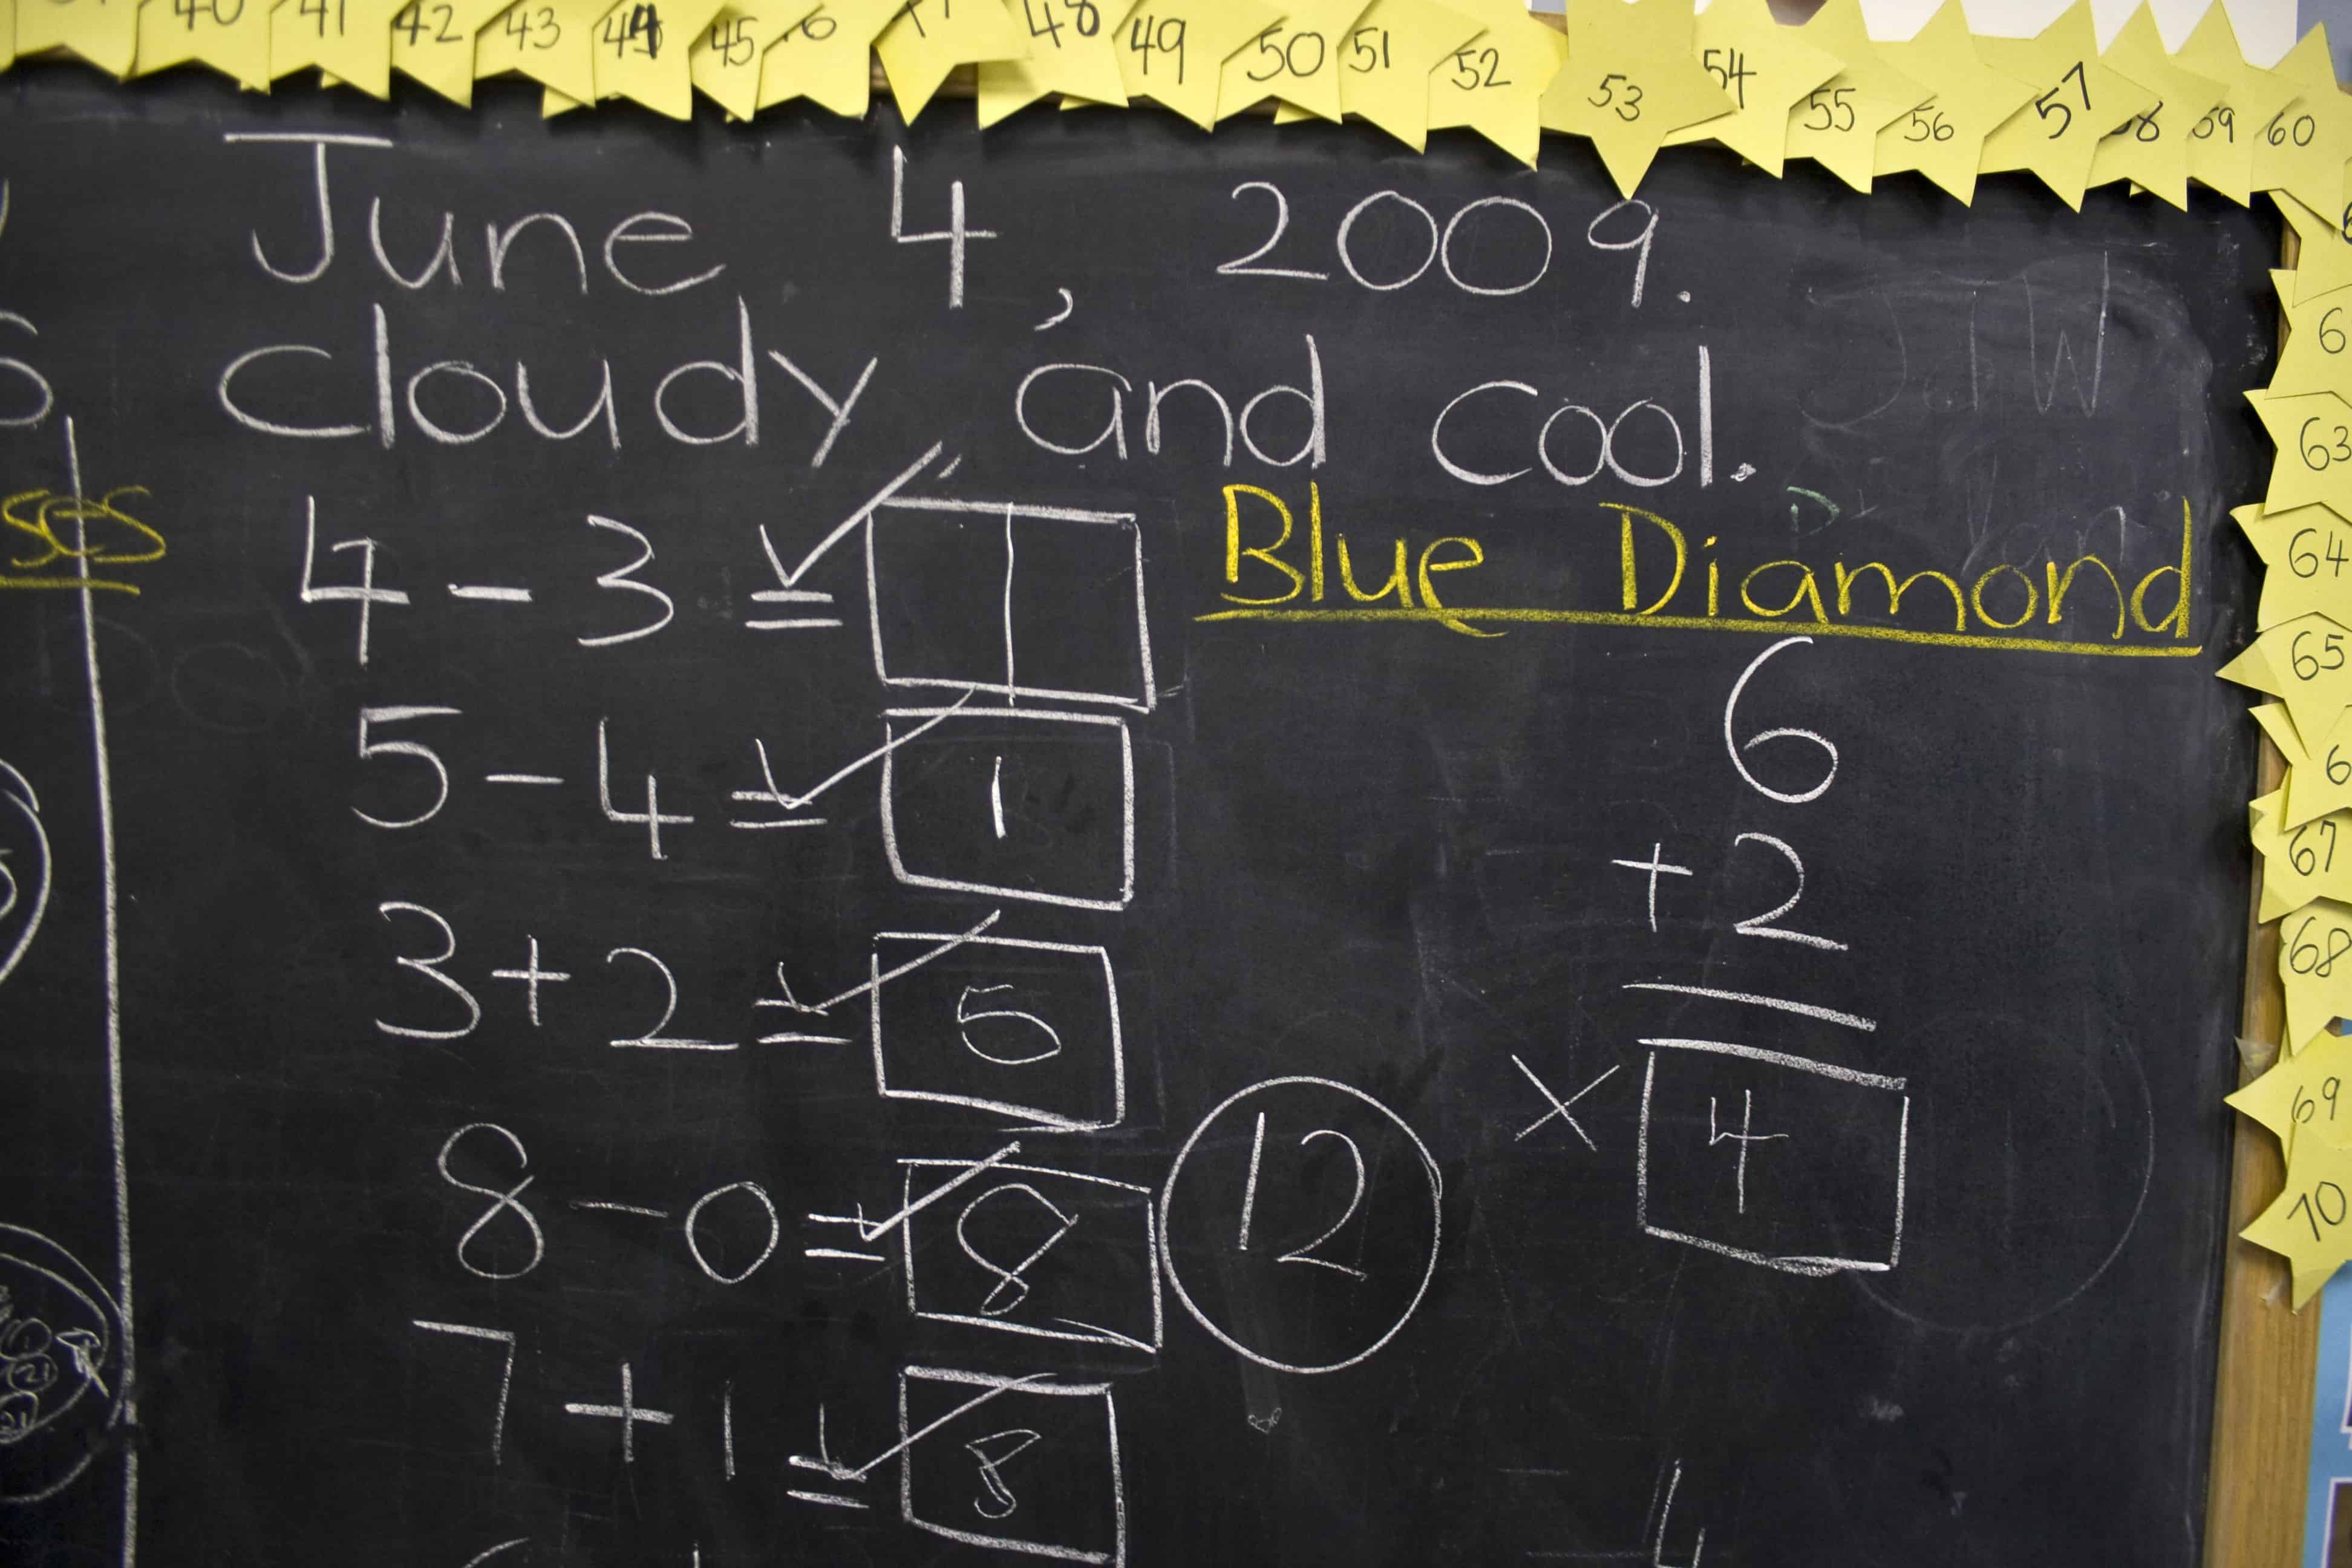 40 41 42 43 44 45 48 49 50 51 52 53 54 55 56 57 58 59 60
June 4, 2009.
Cloudy, and cool.
4 - 3 = 1
5 - 4 = 1
3 + 2 = 5
8 - 0 = 8
7 + 1 = 8
12
Blue Diamond
6
+ 2
× 4
63
64
65
67
68
69
70